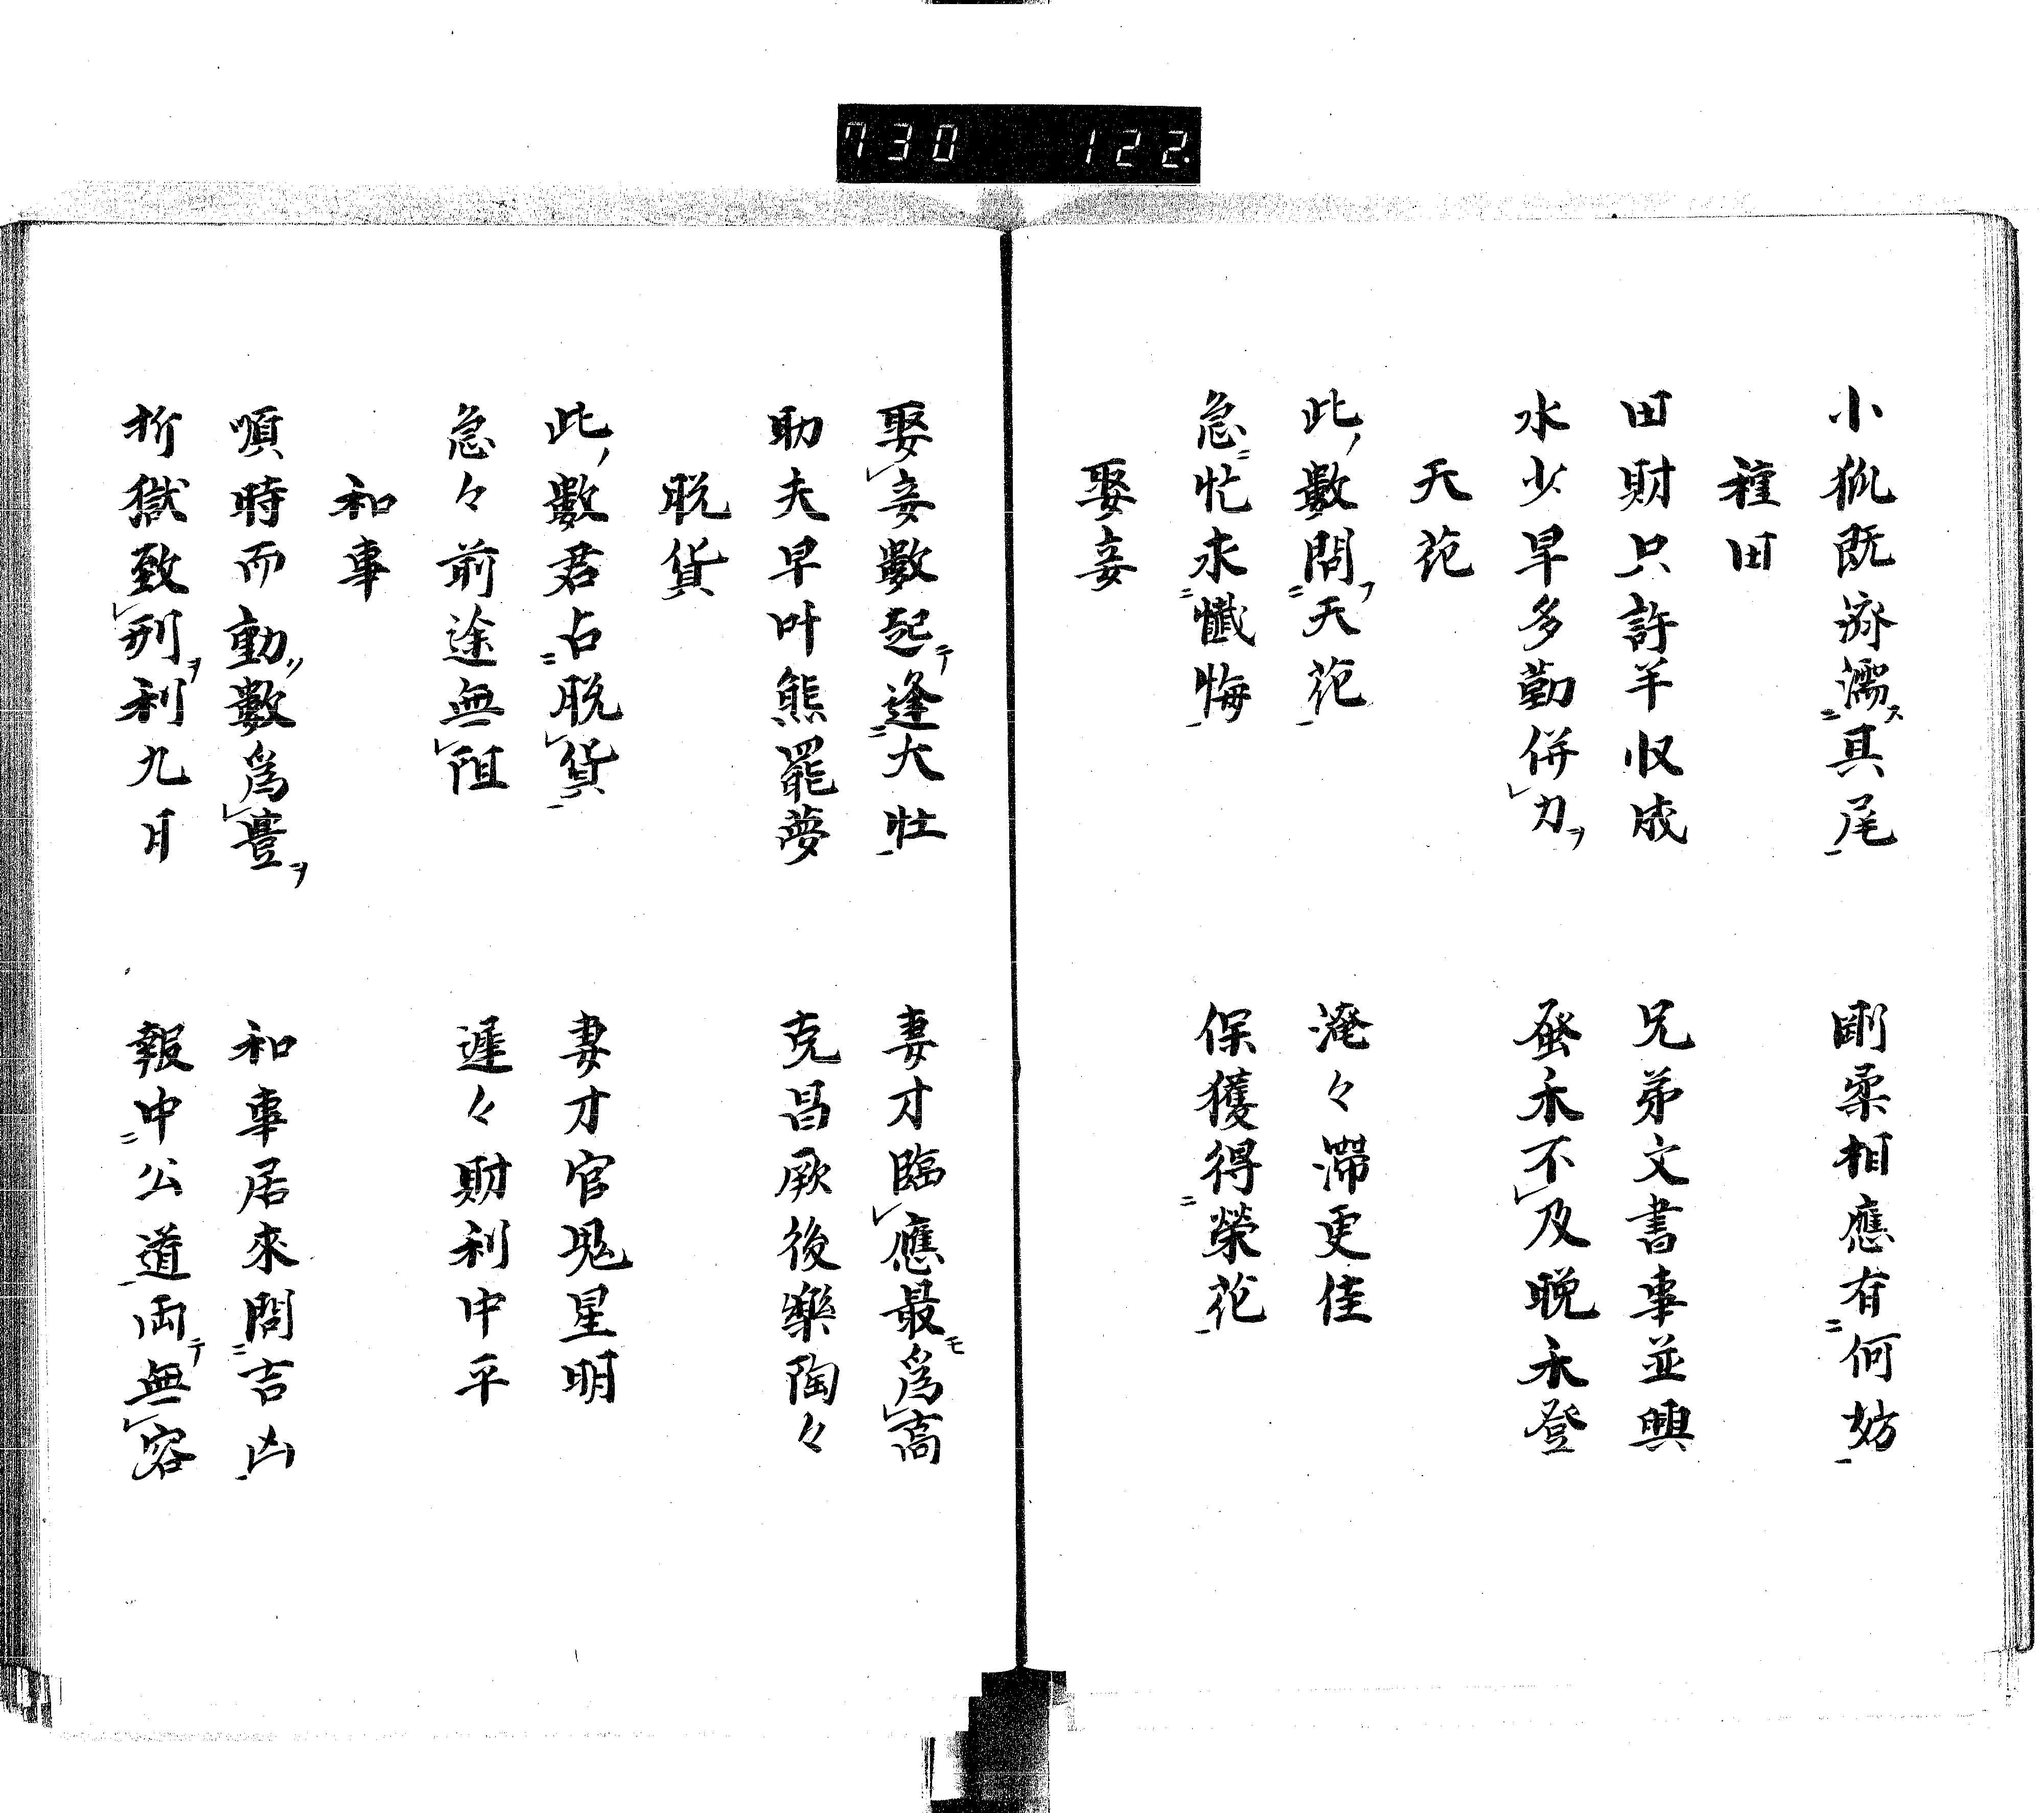 730 122
小狐既済濡ス其尾 剛柔相應有何妨
種田
田財只許羊収成 兄弟文書事並興
水少早多勤併力ヲ 蚤禾不及晩禾登
天花
此數問フ天花 淹々滯更佳
急忙求懺悔 保獲得榮花
娶妾
娶妾數起テ逢大壮 妻才臨應最モ爲高
助夫早叶熊羆夢 克昌厥後樂陶々
脱貨
此數君占脱貨 妻才官鬼星明
急々前途無阻 遲々財利中平
和事
順時而動數爲豊ヲ 和事居來問吉凶
折獄致刑ヲ利九月 報中公道両テ無容